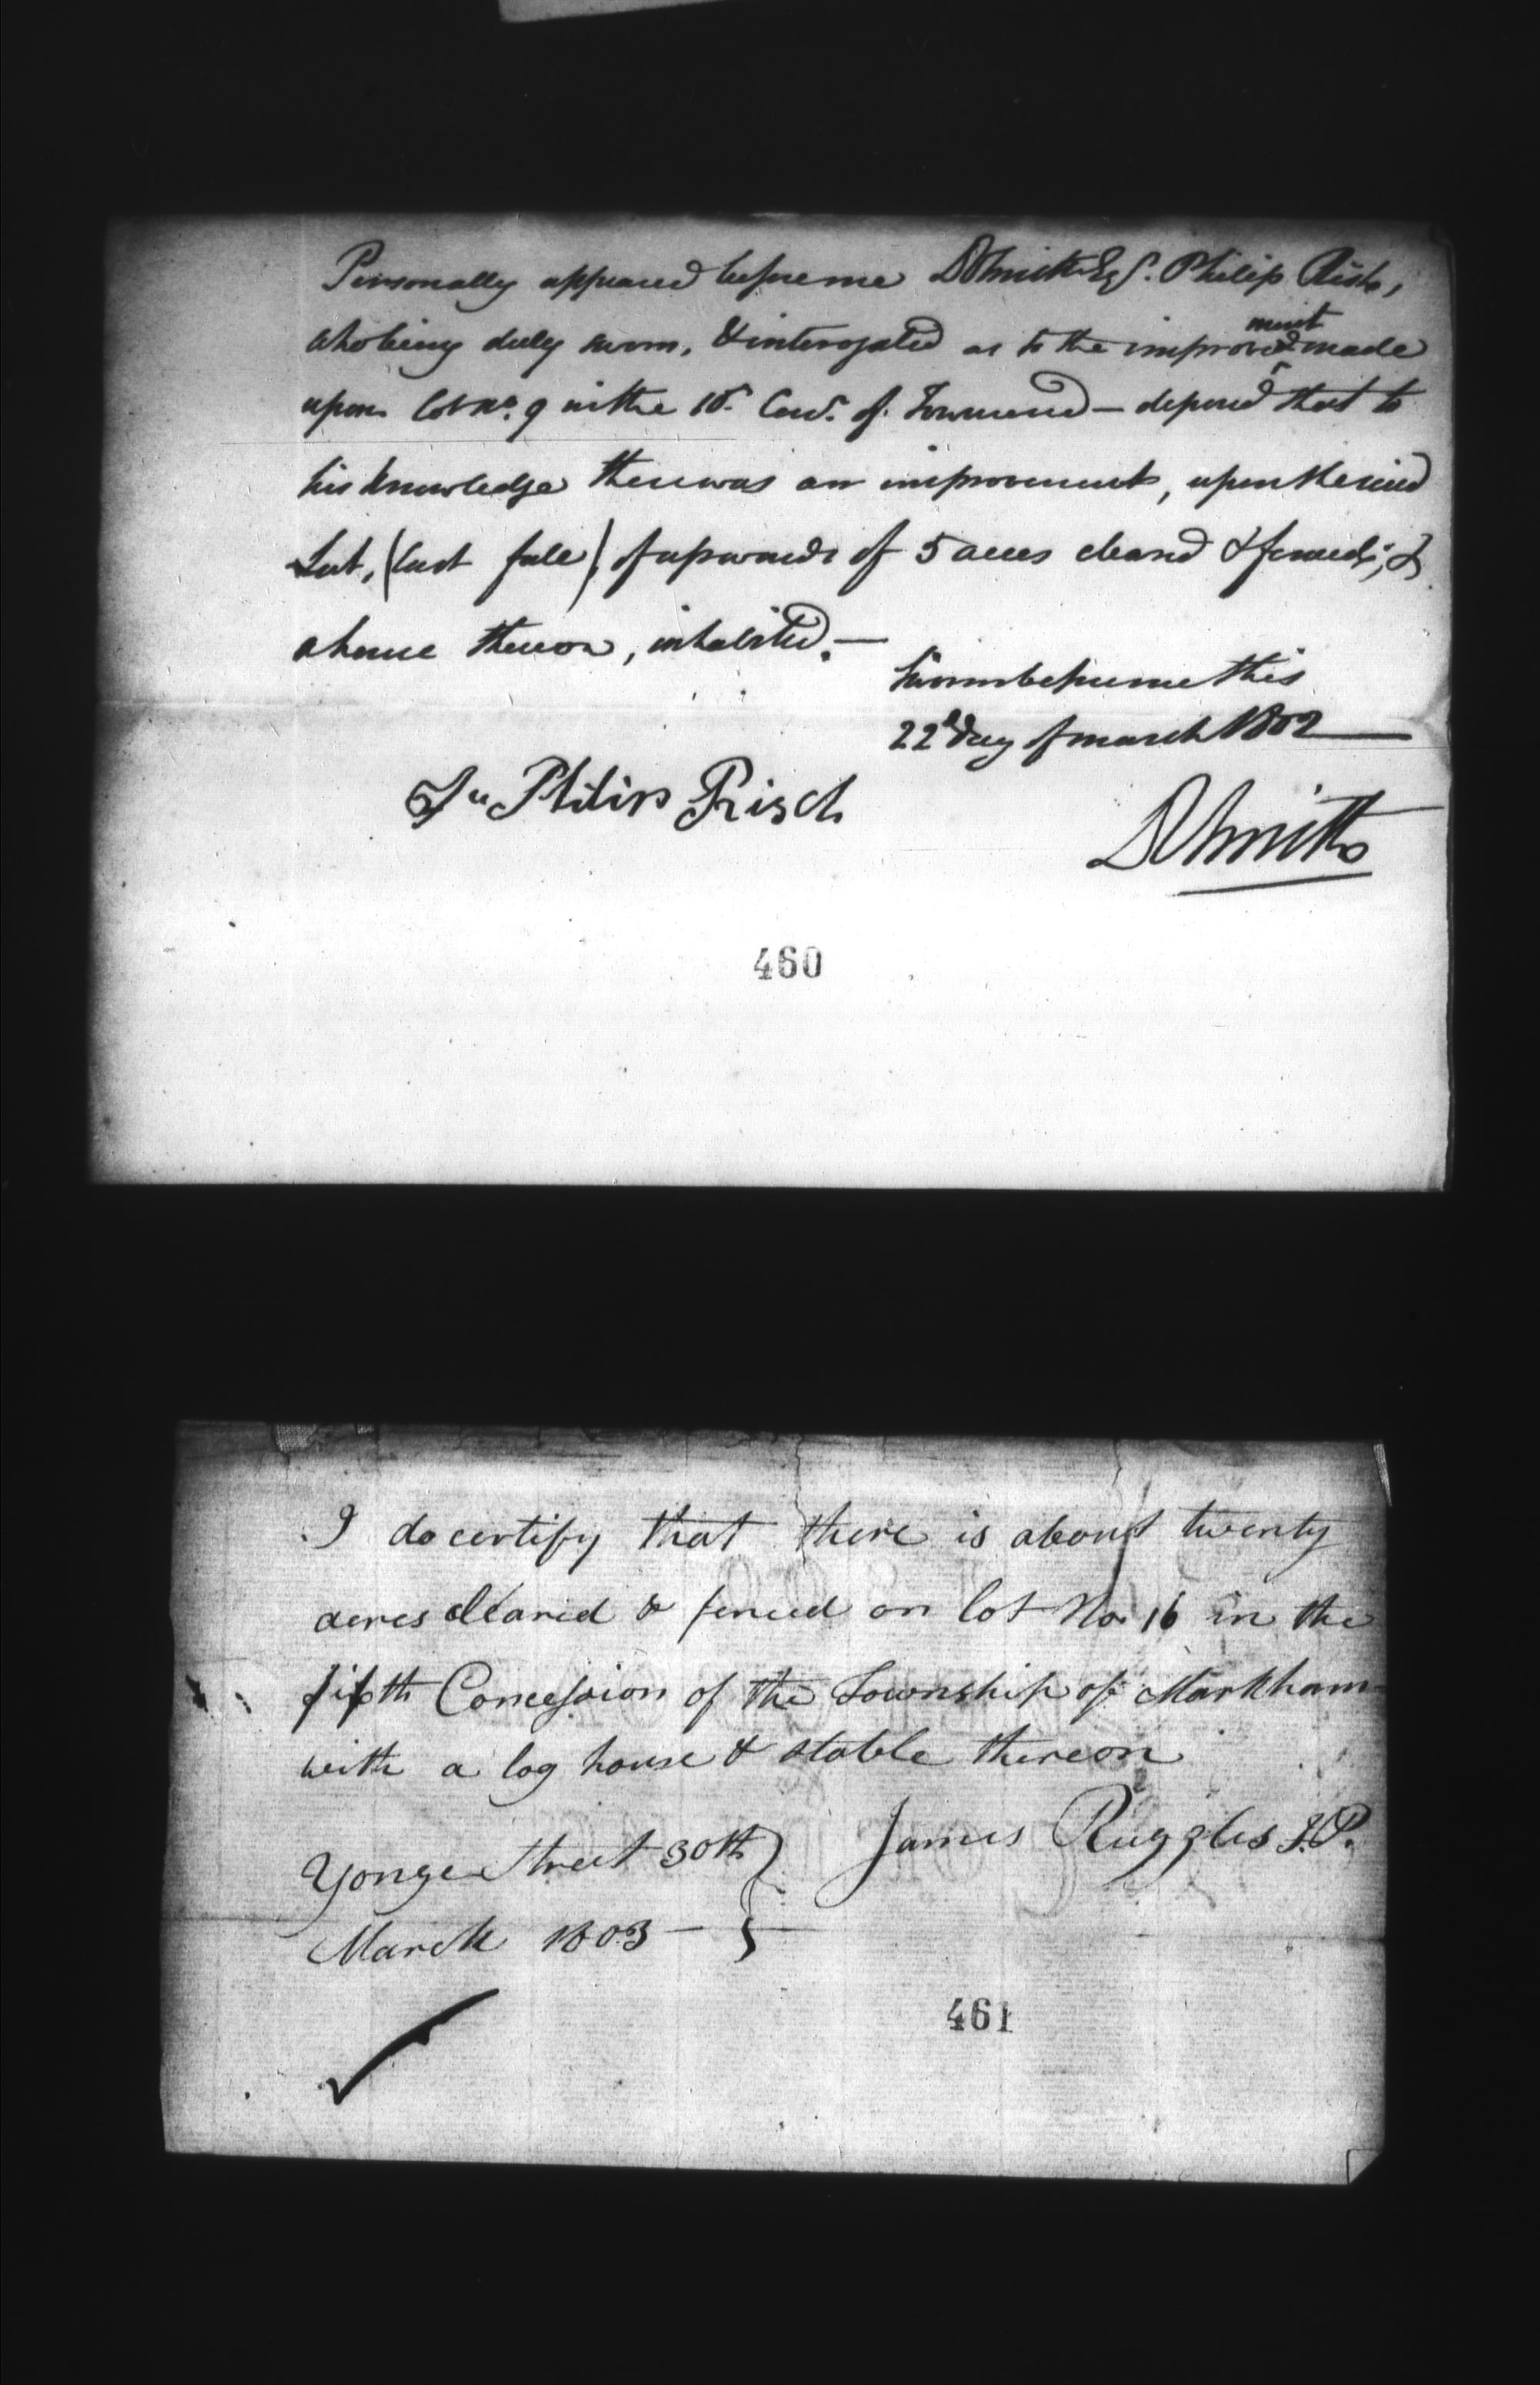 Personally appeared before me DWSmith Esqr. Philip Risk,
who being duly sworn, & interogated as to the improvement made
upon Lot no. 9 in the 10. Con. of Townsend — deposed that to
his knowledge there was an improvement, upon the said
Lot, (last fall) of upwards of 5 acres cleared & fenced; &
a house thereon, inhabited. —
Sworn before me this
22d day of march 1802
Philip Risch
DWSmith
460
I do certify that there is about twenty
acres Cleared & fenced on lot No 16 in the
fifth Concession of the Township of Markham
with a log house & stable thereon
Yonge Street 30th } James Ruggles J.P.
March 1803 — }
461